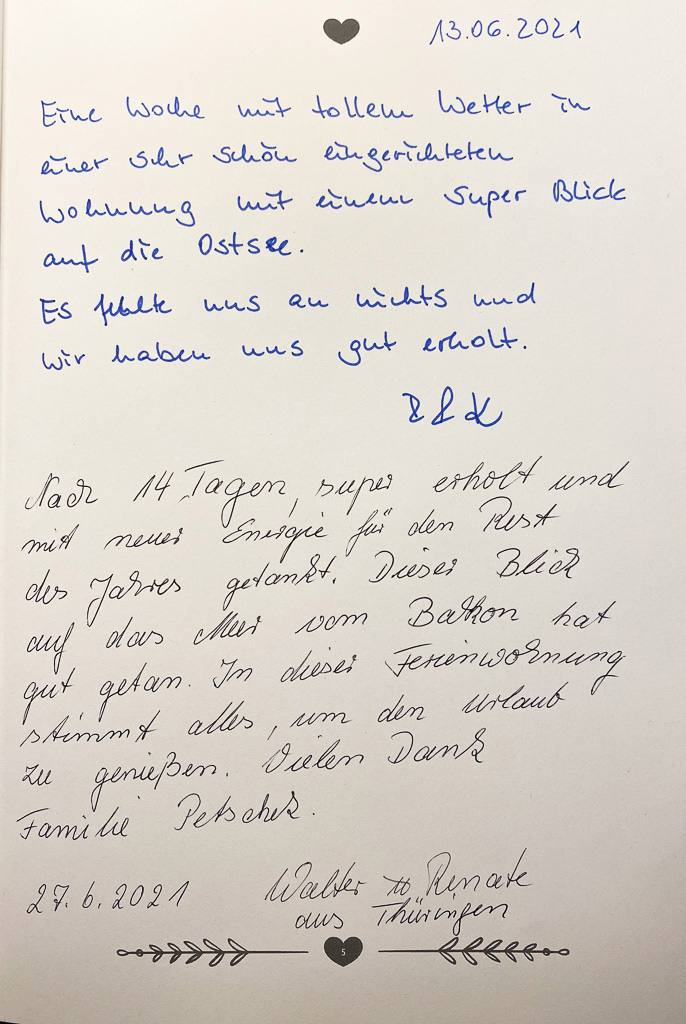 13.06.2021
Eine Woche mit tollem Wetter in
einer sehr schön eingerichteten
Wohnung mit einem super Blick
auf die Ostsee.
Es fehlte uns an nichts und
wir haben uns gut erholt.
Nach 14 Tagen, super erholt und
mit neuer Energie für den Rest
des Jahres getankt. Dieser Blick
auf das Meer vom Balkon hat
gut getan. In dieser Ferienwohnung
stimmt alles, um den Urlaub
zu genießen. Vielen Dank
Familie
27.6.2021 Walter Renate
aus Thüringen
5